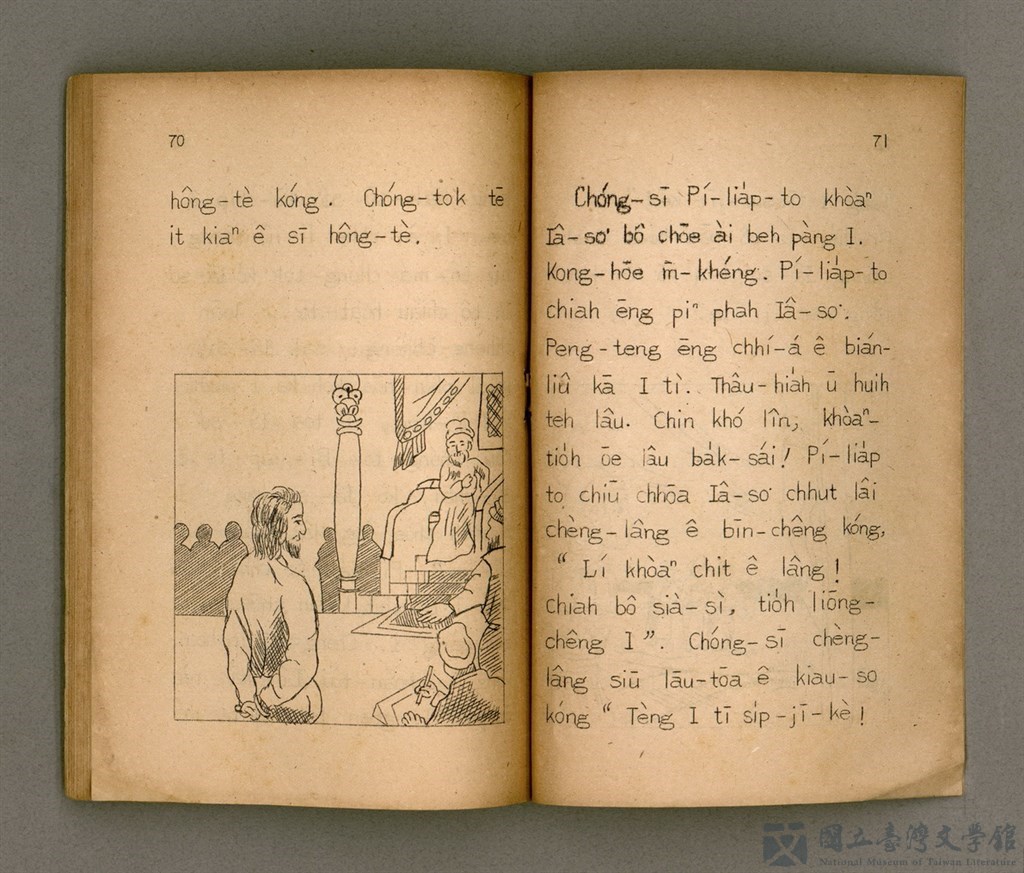 70
hông-tè kóng. Chóng-tok tē
it kiaⁿ ê sī hông-tè.
71
Chóng-sī Pí-lia̍p-to khòaⁿ
Iâ-so͘ bô chōe ài beh pàng I.
Kong-hōe m̄-khéng. Pí-lia̍p-to
chiah ēng piⁿ phah Iâ-so͘.
Peng-teng ēng chhí-á ê bián-
liû kā I tì. Thâu-hia̍h ū huih
teh lâu. Chin khó lîn, khòaⁿ-
tio̍h ōe lâu ba̍k-sái! Pí-lia̍p
to chiū chhōa Iâ-so͘ chhut lâi
chèng-lâng ê bīn-chêng kóng,
“ Lí khòaⁿ chit ê lâng!
chiah bô sià-sì, tio̍h liông-
chêng I ”. Chóng-sī chèng-
lâng siū lāu-tōa ê kiau-so
kóng “ Tèng I tī si̍p-jī-kè!
國立臺灣文學館
National Museum of Taiwan Literature